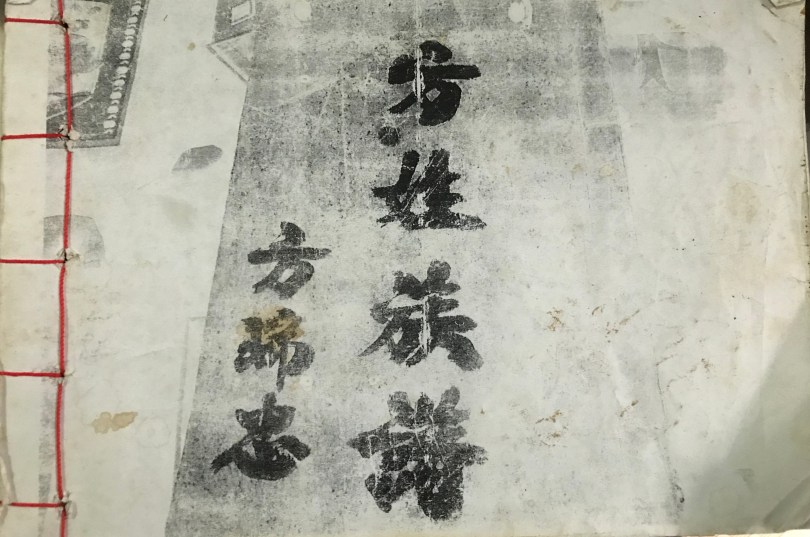 方姓族譜
方瑞忠